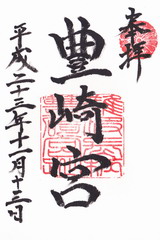 奉拝
豊崎宮
平成二十三年十一月十三日